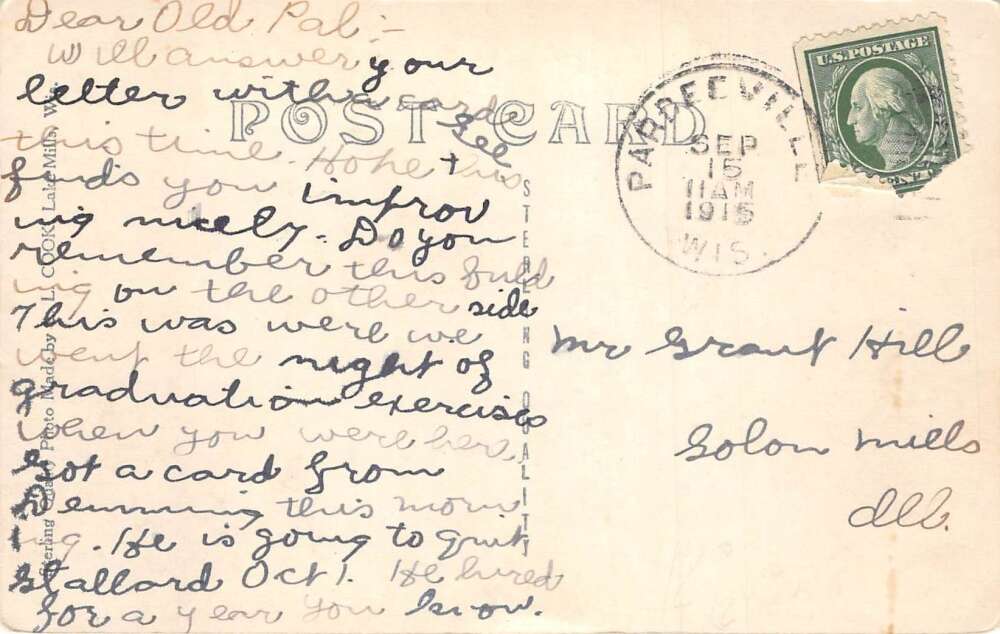 Dear Old Pal:-
Will answer your
letter with a card
this time. Hope this
finds you improv
ing nicely. Do you
remember this build
ing on the other side
This was were we
went the night of
graduation exercises
when you were here,
Got a card from
Demming this morn
ing. He is going to quit
Stallard Oct 1. He hired
for a year you know.
POST CARD
STERLING QUALITY
Sterling Quality Photo Made by L. L. COOK, Lake Mills, Wis.
PARDEEVILLE
SEP
15
11 AM
1915
WIS.
U.S. POSTAGE
Mr Grant Hill
Solon Mills
Ill.